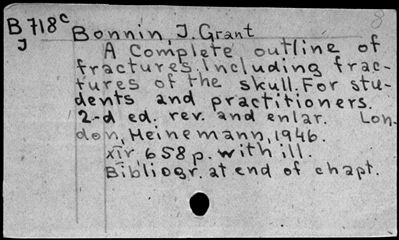 B 718c Bonnin, J. Grant
J
A Complete outline of
fractures. Including frac-
tures of the skull. For stu-
dents and practitioners.
2-d ed. rev. and enlar. Lon-
don, Heinemann, 1946.
xiv, 658 p. with ill.
Bibliogr. at end of chapt.